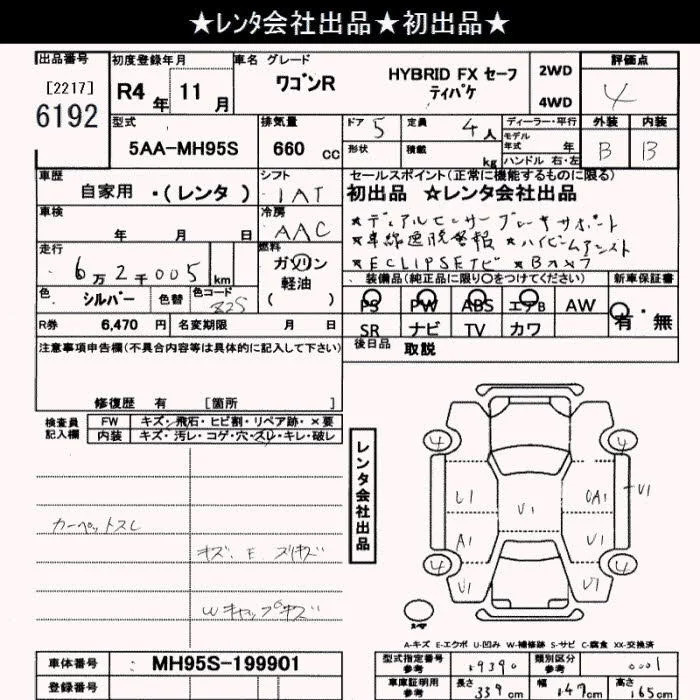 ★レンタ会社出品★初出品★
出品番号 初度登録年月 車名 グレード 評価点
[2217] 6192 R4年 11月 ワゴンR HYBRID FX セーフティパケ 2WD 4WD 4
型式 排気量 ドア 5 定員 4人 ディーラー・平行 外装 内装
5AA-MH95S 660 cc 形状 積載 kg モデル年式 年 B B
ハンドル 右・左
車歴 シフト セールスポイント(正常に機能するものに限る)
自家用 ・(レンタ) IAT 初出品 ☆レンタ会社出品
車検 冷房 ★デュアルセンサーブレーキサポート
年 月 日 AAC ★車線逸脱警報 ★ハイビームアシスト
走行 燃料 ★ECLIPSEナビ ★Bカメラ
6万2千005 km ガソリン 軽油 ( ) 装備品(純正品に限り〇をつけてください) 新車保証書
色 シルバー 色替 色コード Z2S PS PW ABS エアB AW 有・無
R券 6,470 円 名変期限 月 日 SR ナビ TV カワ
注意事項申告欄(不具合内容等は具体的に記入して下さい) 後日品 取説
修復歴 有 [箇所 ]
検査員記入欄 FW キズ・飛石・ヒビ割・リペア跡・×要
内装 キズ・汚レ・コゲ・穴・スレ・キレ・破レ
レンタ会社出品
4 4
U1 U1 UA1 U1
A1 U1
4 4
U1 U1
カーペットスレ
キズ、E、スリキズ
Wキャップキズ
A-キズ E-エクボ U-凹み W-補修跡 S-サビ C-腐食 XX-交換済
車体番号 MH95S-199901 型式指定番号 参考 19390 類別区分 参考 0001
登録番号 車庫証明用 参考 長さ 339 cm 幅 147 cm 高さ 165 cm